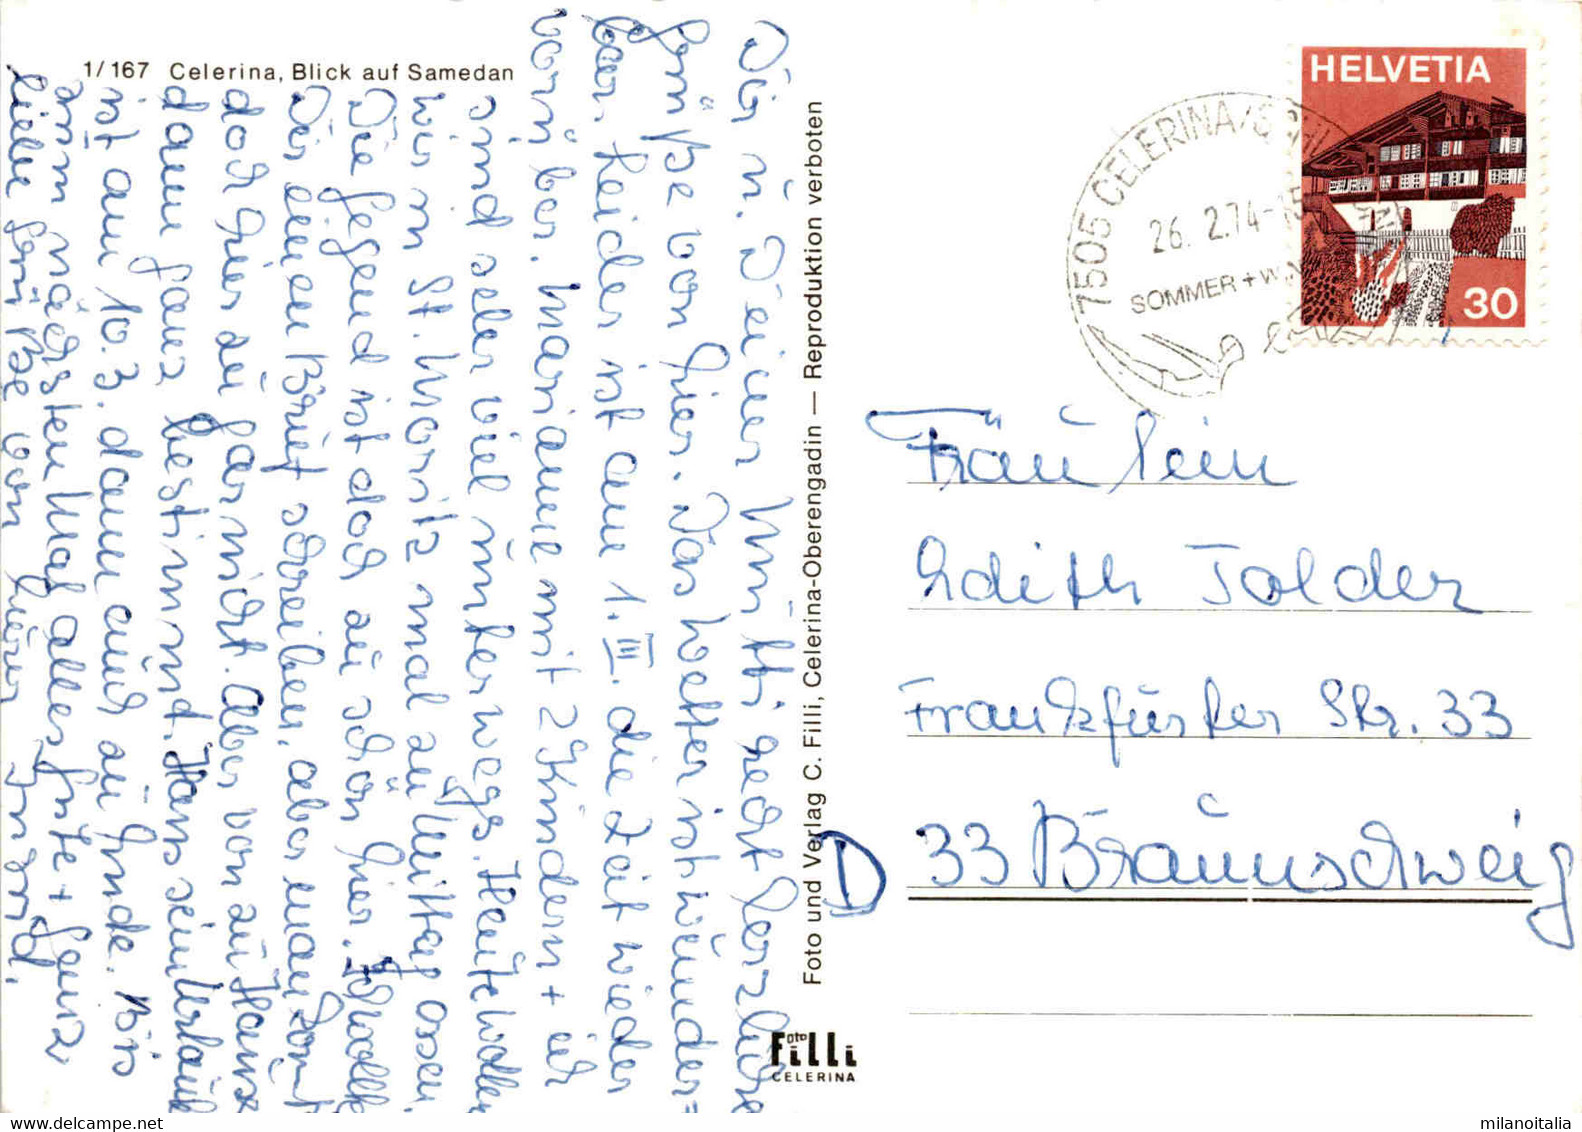 1/167 Celerina, Blick auf Samedan
Dir u. Deiner Mutti recht herzliche
Grüße von hier. Das Wetter ist wunder=
bar. Leider ist am 1. III. die Zeit wieder
vorüber. Marianne mit 2 Kindern + ich
sind sehr viel unterwegs. Heute wollen
wir in St. Moritz mal zu Mittag essen.
Die Gegend ist doch zu schön hier. Ich wollte
Dir einen Brief schreiben, aber man kommt
doch hier zu gar nicht. Aber von zu Hause
dann ganz bestimmt. Hans sein Urlaub
ist am 10.3. dann auch zu Ende. Bis
zum nächsten Mal alles Gute + ganz
liebe Grüße von Eurer Ingrid.
Foto und Verlag C. Filli, Celerina-Oberengadin — Reproduktion verboten
Foto Filli
CELERINA
HELVETIA
30
7505 CELERINA/S
26. 2.74-15
SOMMER + WIN
Fräulein
Edith Tolder
Frankfurter Str. 33
D 33 Braunschweig
milanoitalia